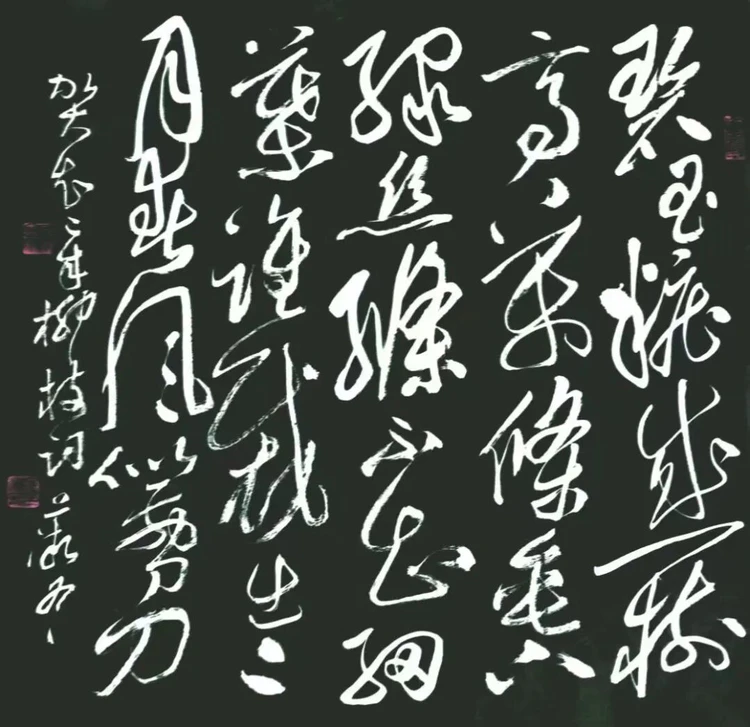 碧玉粧成一樹
高萬條垂下
綠絲縧不知細
葉誰裁出二
月春風似剪刀
賀知章柳枝詞